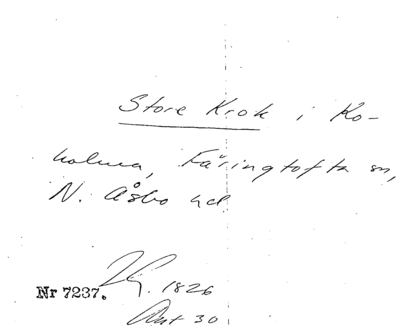 Store Krok i Ko-
holma, Färingtofta sn,
N. Åsbo hd
Nr 7237. 1826
Ant 30